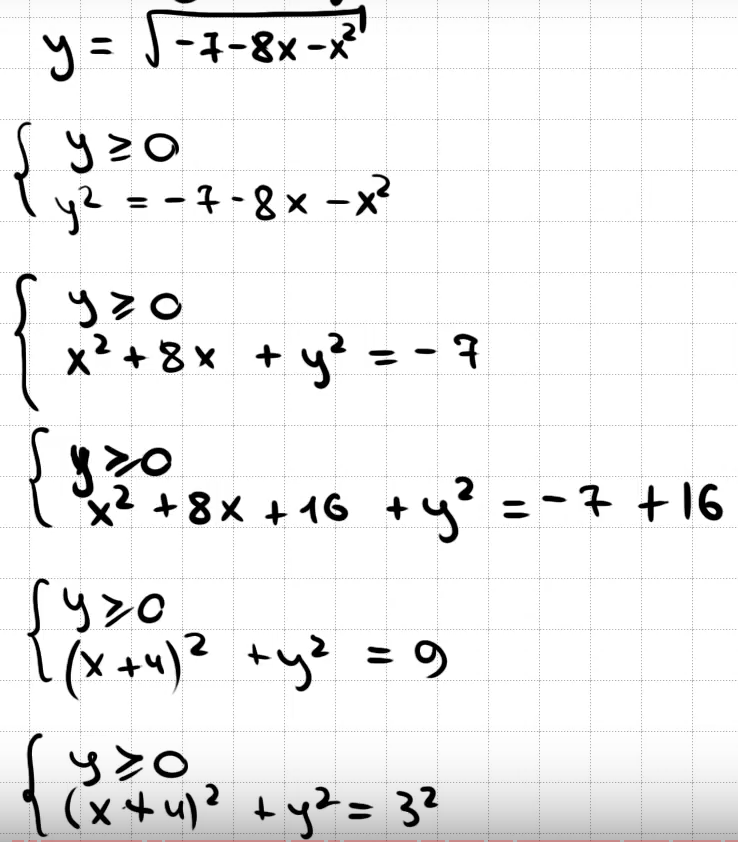 y = √(-7-8x-x²)
{ y ≥ 0
y² = -7-8x-x²
{ y ⩾ 0
x² + 8x + y² = -7
{ y ⩾ 0
x² + 8x + 16 + y² = -7 + 16
{ y ⩾ 0
(x+4)² + y² = 9
{ y ⩾ 0
(x+4)² + y² = 3²